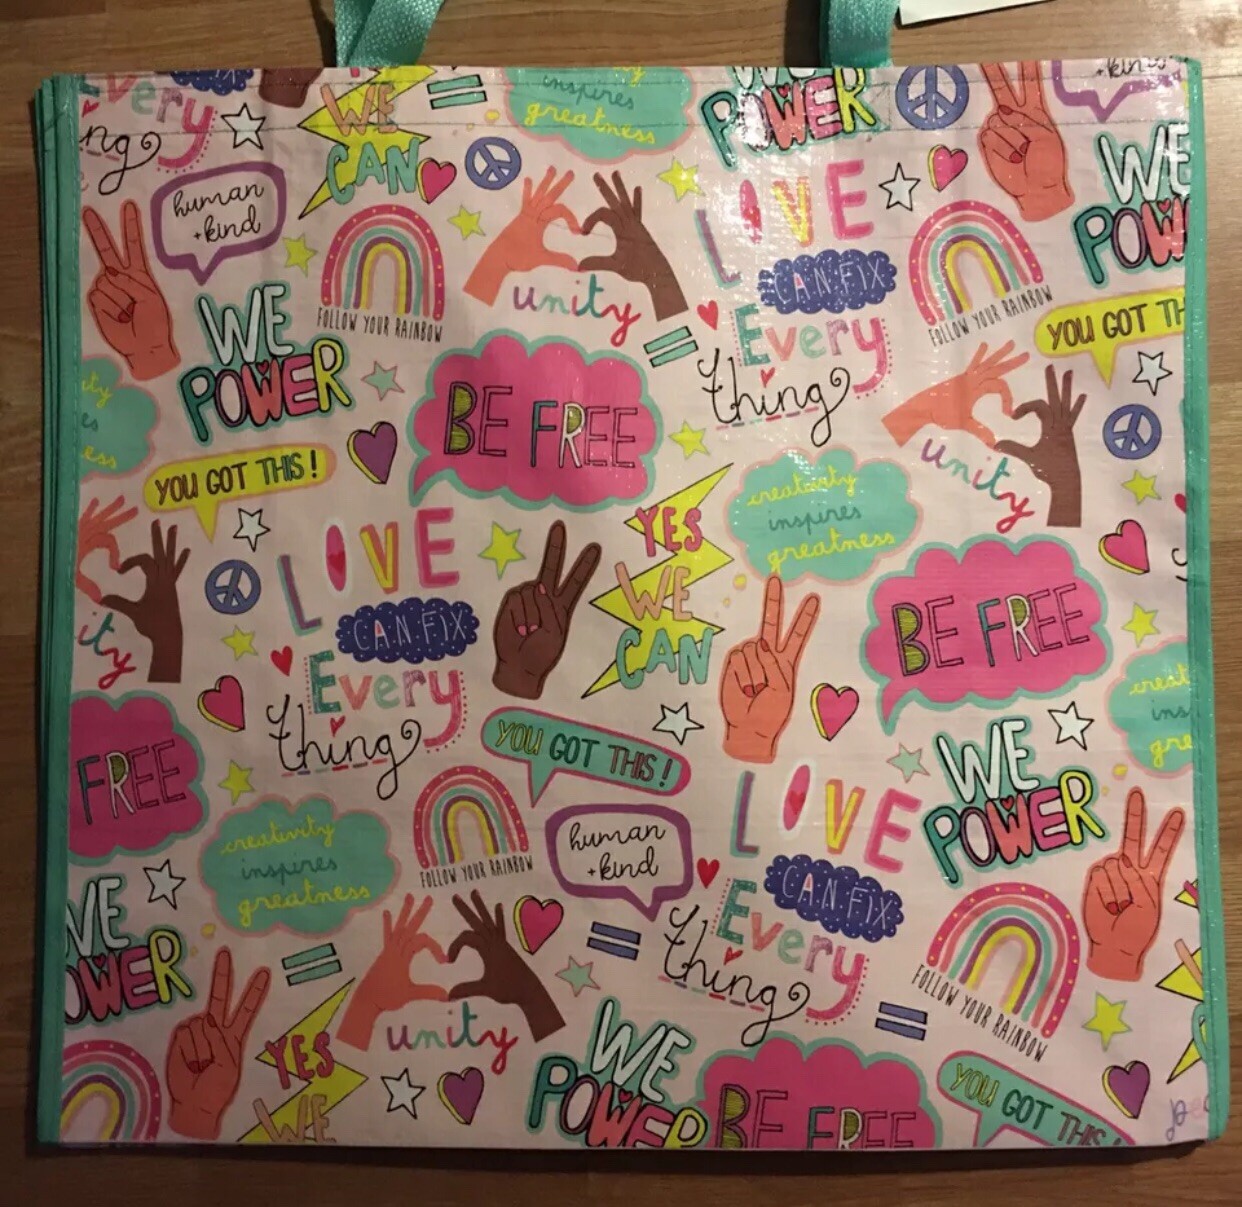 Every
ng
WE
CAN
inspires
greatness
POWER
+kind
human
+kind
WE
POWER
FOLLOW YOUR RAINBOW
unity
LOVE
CAN FIX
Every
thing
FOLLOW YOUR RAINBOW
WE
POW
YOU GOT TH
BE FREE
unity
ity
es
ess
YOU GOT THIS!
creativity
inspires
greatness
LOVE
CAN FIX
Every
thing
YES
WE
CAN
BE FREE
ity
creat
ins
gre
FREE
YOU GOT THIS!
WE
POWER
creativity
inspires
greatness
FOLLOW YOUR RAINBOW
human
+kind
LOVE
CAN FIX
Every
thing
WE
OWER
unity
FOLLOW YOUR RAINBOW
YES
WE
WE
POWER
BE FREE
YOU GOT THIS!